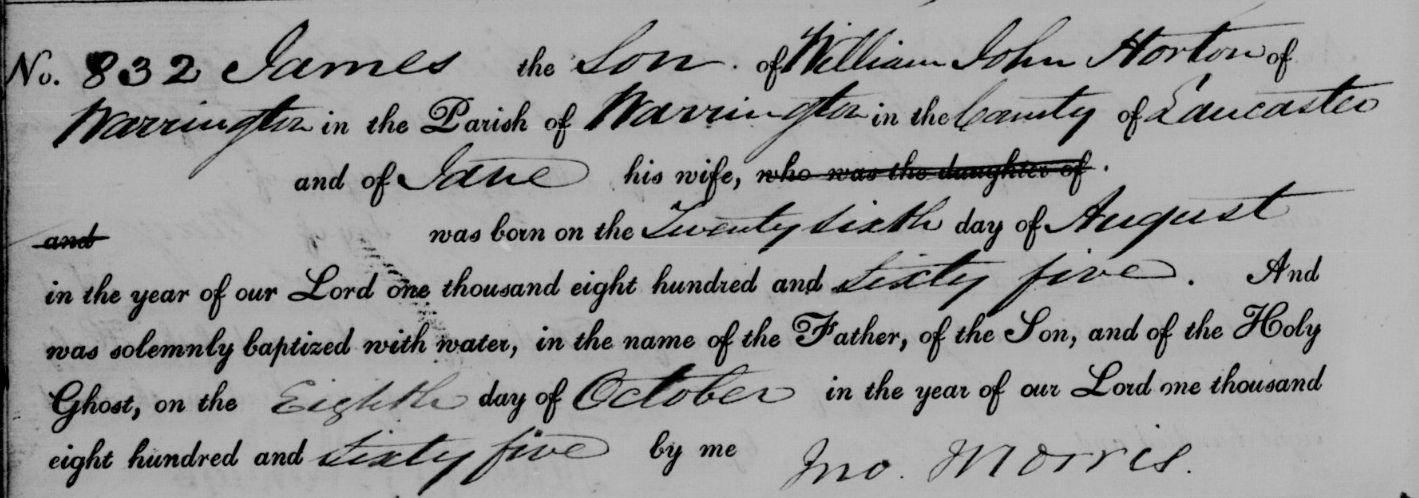 No. 832 James the Son of William John Horton of
Warrington in the Parish of Warrington in the County of Lancaster
and of Jane his wife, who was the daughter of
and was born on the Twenty sixth day of August
in the year of our Lord one thousand eight hundred and sixty five. And
was solemnly baptized with water, in the name of the Father, of the Son, and of the Holy
Ghost, on the Eighth day of October in the year of our Lord one thousand
eight hundred and sixty five by me Jno. Morris.